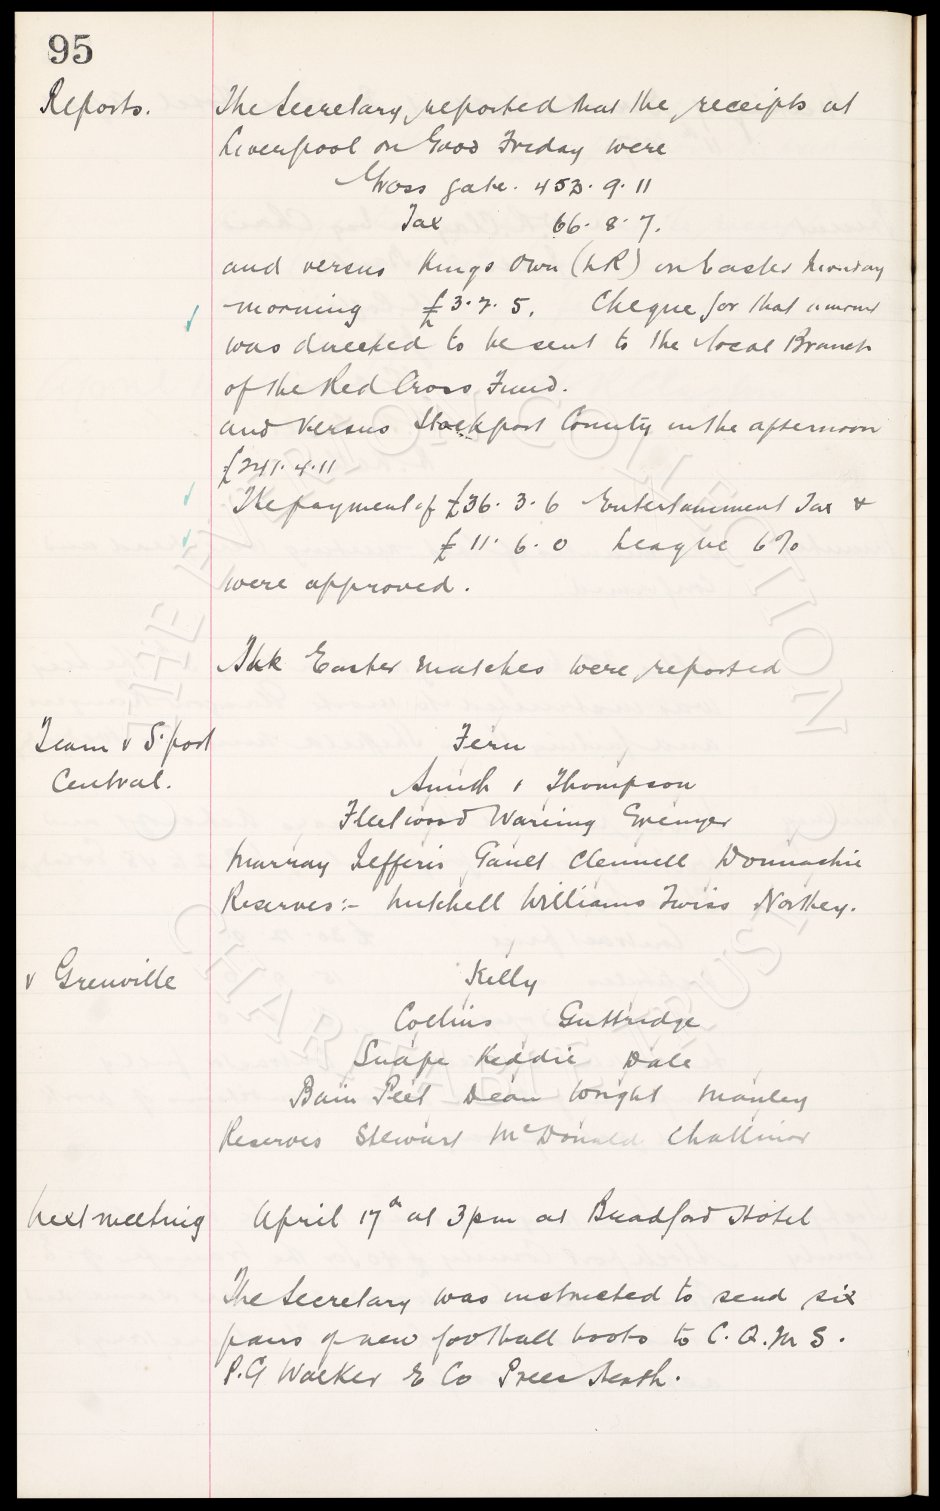 95
Reports. The Secretary reported that the receipts at
Liverpool on Good Friday were
Gross gate. 453. 9. 11
Tax 66. 8. 7.
and versus Kings Own (LR) on Easter Monday
morning £3. 7. 5. Cheque for that amount
was directed to be sent to the local Branch
of the Red Cross Fund.
and versus Stockport County in the afternoon
£241. 4. 11
The payment of £36. 3. 6 Entertainment Tax &
£11. 6. 0 League 6%
were approved.
The Easter matches were reported
Team v S'port Fern
Central. Smith, Thompson
Fleetwood Wareing Grenyer
Murray Jefferis Gault Clennell Donnachie
Reserves:- Mitchell Williams Twiss Northey.
v Grenville Kelly
Collins Guttridge
Snape Keddie Dale
Bain Peet Dean Wright Manley
Reserves Stewart McDonald Challinor
Next meeting April 17th at 3pm at Bradford Hotel
The Secretary was instructed to send six
pairs of new football boots to C. Q. M S.
P. G Walker E Co Prees Heath.
THE EVERTON COLLECTION
CHARITABLE TRUST